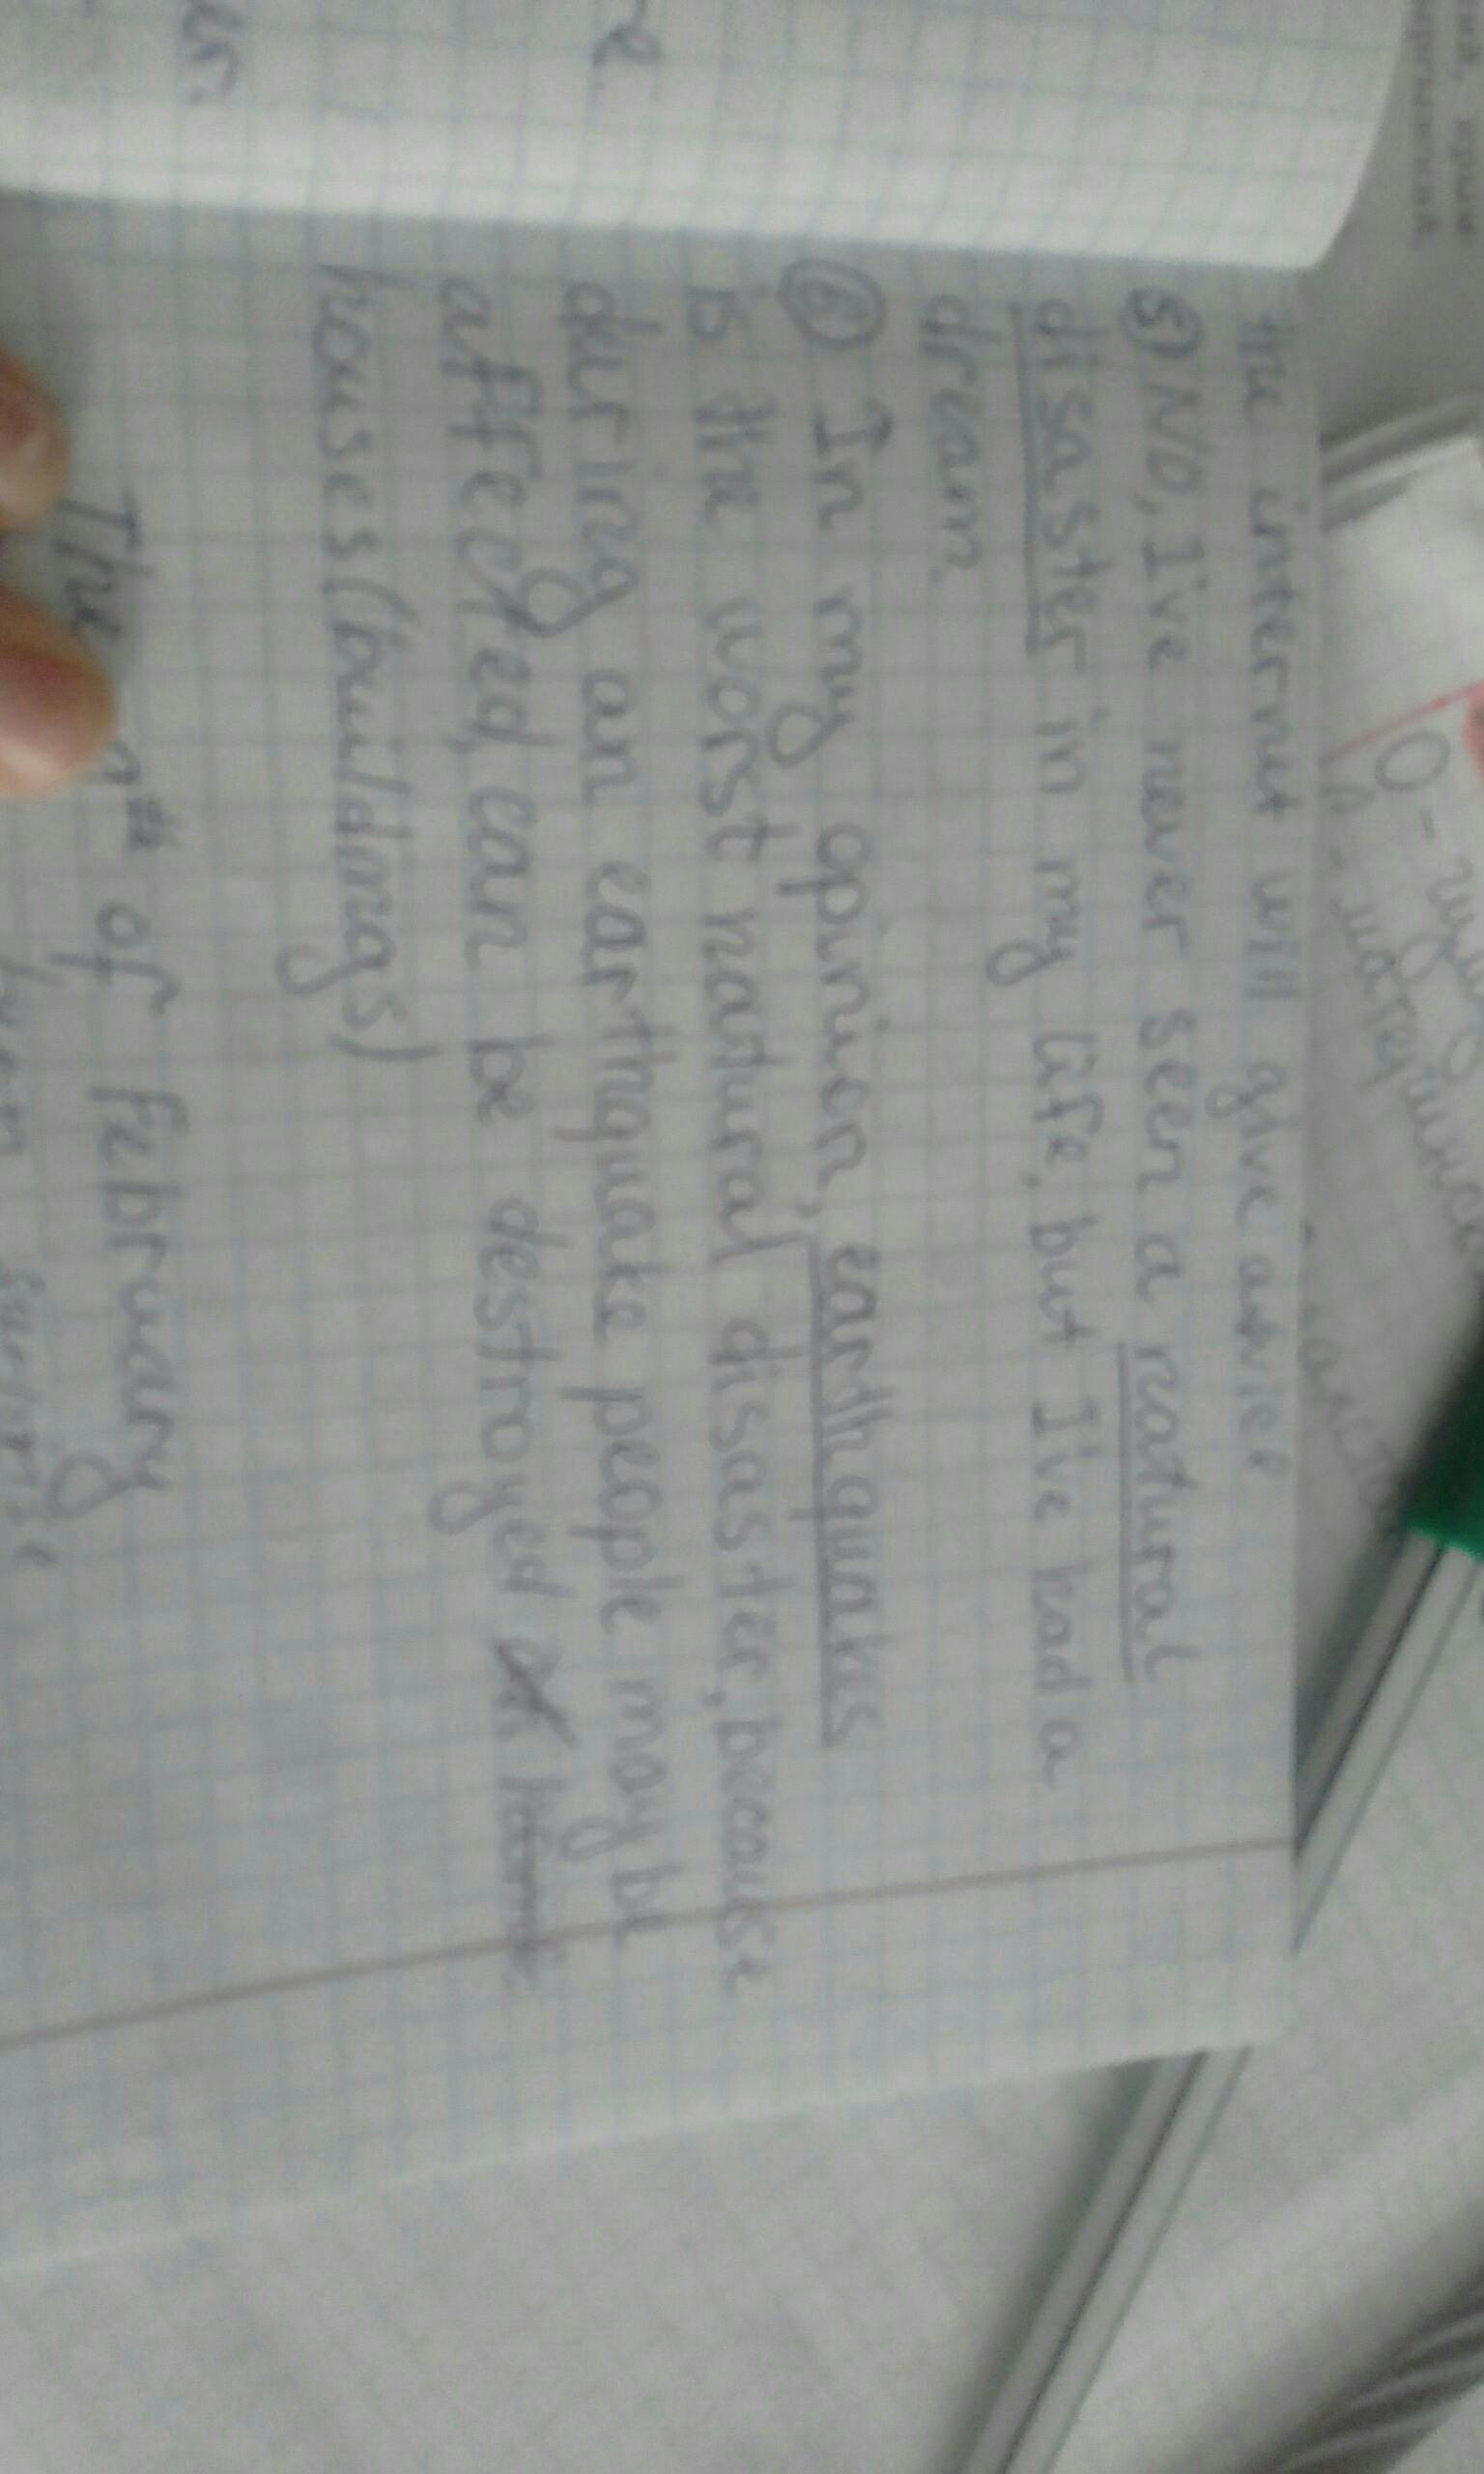 the internet will give advice
5) No, I've never seen a natural
disaster in my life, but I've had a
dream.
6) In my opinion, earthquakes
is the worst natural disaster, because
during an earthquake people may be
affected, can be destroyed
houses (buildings)
The of February